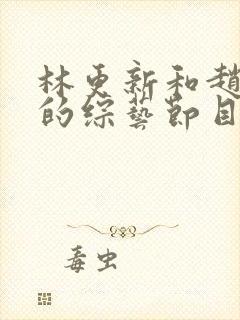 林更新和趙
的综藝節目
毒虫